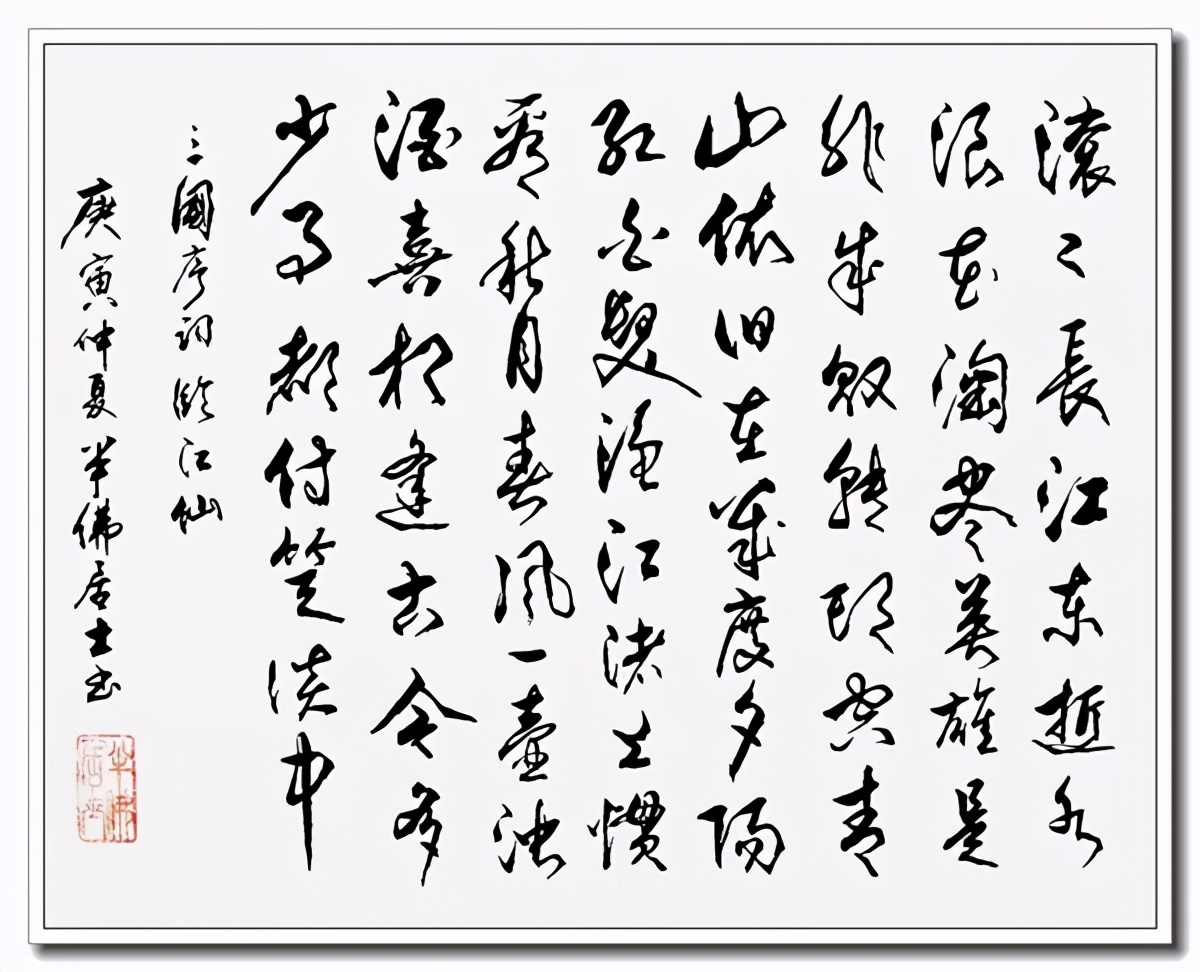 滚〻長江东逝水
浪花淘尽英雄是
非成敗转头空青
山依旧在幾度夕陽
红白髮渔江渚上慣
看秋月春風一壺浊
酒喜相逢古今多
少事都付笑谈中
三國序词临江仙
庚寅仲夏半佛居士书
半佛居士